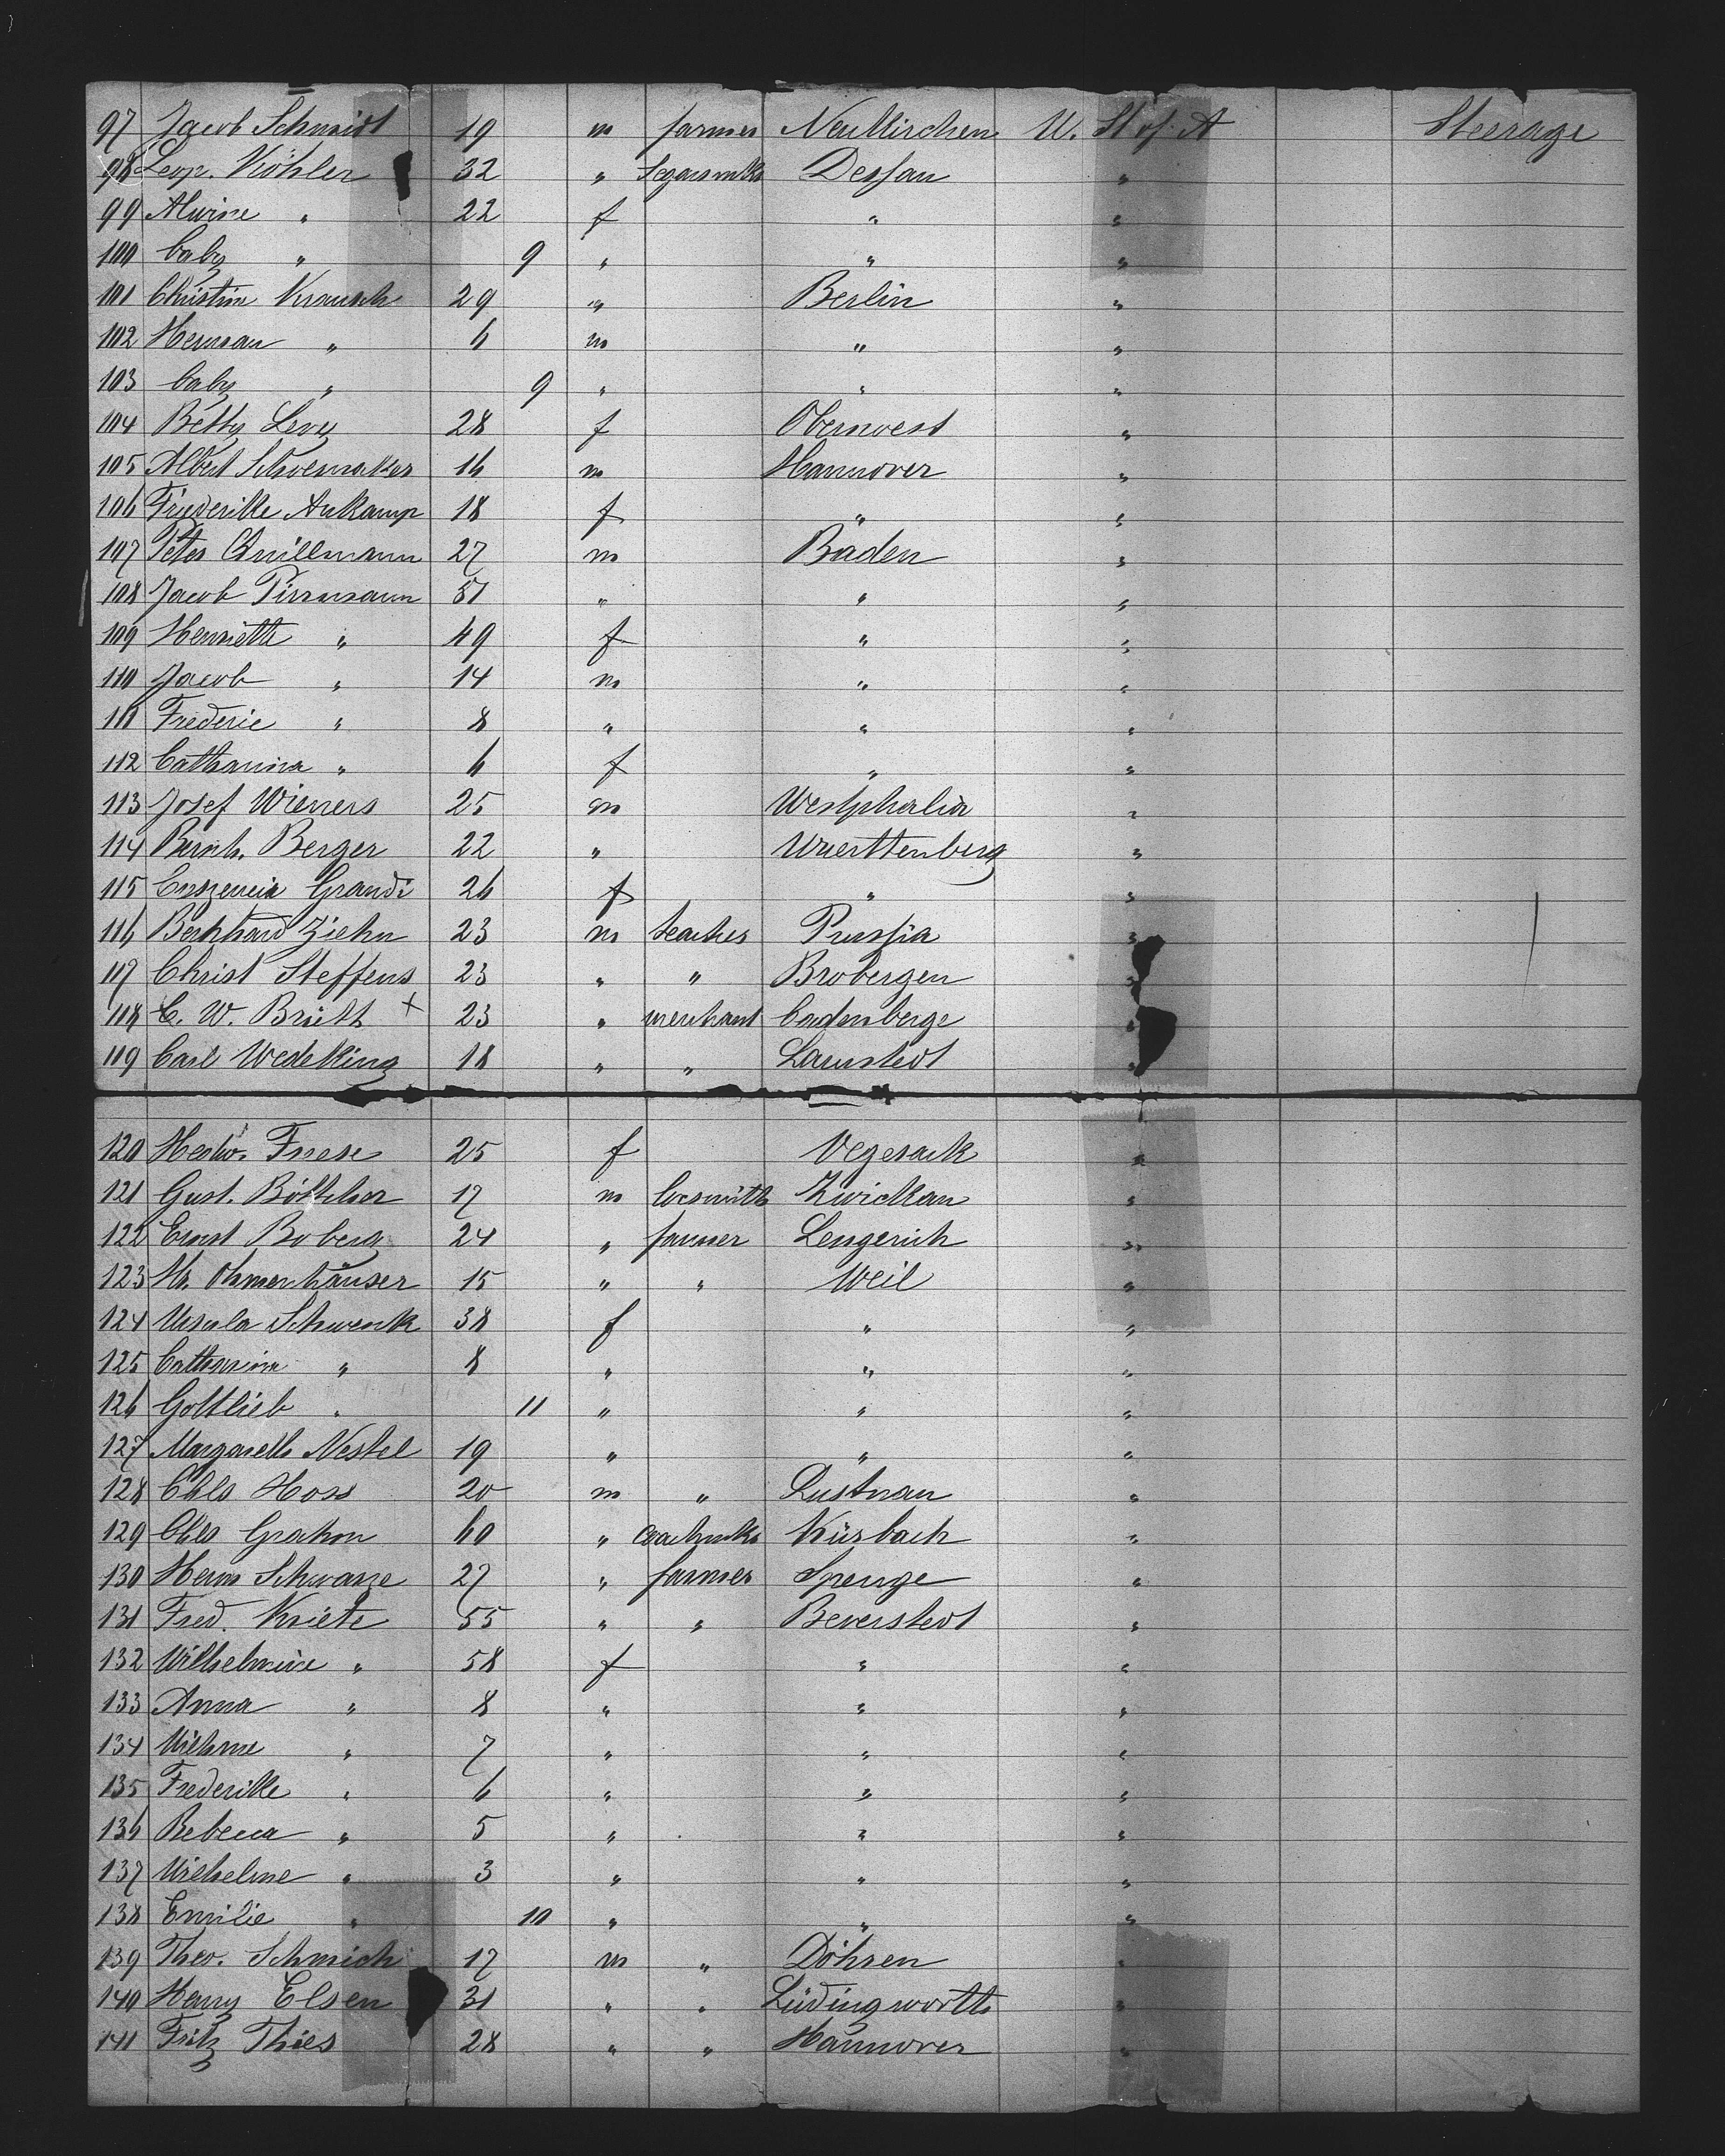 97 Jacob Schmidt 19 m farmer Neukirchen U. St of. A Steerage
98 Leop. Köhler 32 " Segarmkr Dessau "
99 Alwine " 22 f " "
100 baby " 9 " " "
101 Christin Krausch 29 " Berlin "
102 Herman " 6 m " "
103 baby " 9 " " "
104 Betty Levy 28 f Obernvest "
105 Albert Schoemaker 16 m Hannover "
106 Friederike Ankamp 18 f " "
107 Peter Quillmann 27 m Baden "
108 Jacob Pirrmann 51 " " "
109 Henriette " 49 f " "
110 Jacob " 14 m " "
111 Frederic " 8 " " "
112 Catharina " 6 f " "
113 Josef Wieners 25 m Westphalia "
114 Bernh. Berger 22 " Wuerttenberg "
115 Grandi 26 f " "
116 Bernhard Ziehn 23 m teacher Prussia "
117 Christ Steffens 23 " " Brobergen "
118 C. W. Brütt x 23 " merchant Cadenberge "
119 Carl Wedeking 18 " " Lamstedt "
120 Hedw. Friese 25 f Vegesack "
121 Gust. Böttcher 17 m locsmith Zwickau "
122 Ernst Boberg 24 " farmer Lengerich "
123 H. Ohmenhäuser 15 " " Weil "
124 Ursula Schwenk 38 f " "
125 Catharina " 8 " " "
126 Gottlieb " 11 " " "
127 Margareth Nestel 19 " " "
128 Chls Hoss 20 m " Lustnau "
129 Chls Grahm 60 " coachmkr Kürbach "
130 Herm Schwarze 27 " farmer Spenge "
131 Fred. Kriete 55 " " Beverstedt "
132 Wilhelmine " 58 f " "
133 Anna " 8 " " "
134 Wilhme " 7 " " "
135 Frederike " 6 " " "
136 Rebecca " 5 " " "
137 Wilhelme " 3 " " "
138 Emilie " 10 " " "
139 Theo. Schmich 17 m " Döhren "
140 Henry Elsen 31 " " Lüdingworth "
141 Fritz Thies 28 " " Hannover "